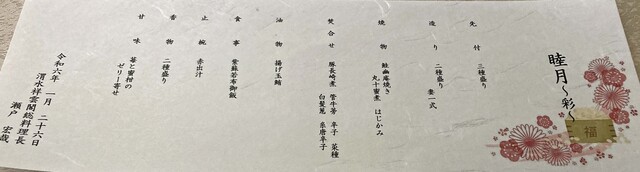 睦月～彩～
福
先付 三種盛り
造り 二種盛り 妻一式
焼物 鮭幽庵焼き はじかみ
丸十蜜煮
焚合せ 豚長崎煮 管牛蒡 辛子 菜種
白髪葱 糸唐辛子
油物 揚げ玉鯆
食事 紫蘇若布御飯
止椀 赤出汁
香物 二種盛り
甘味 苺と蜜柑の
ゼリー寄せ
令和六年 一月 二十六日
渭水祥雲閣総料理長
瀬戸 宏哉